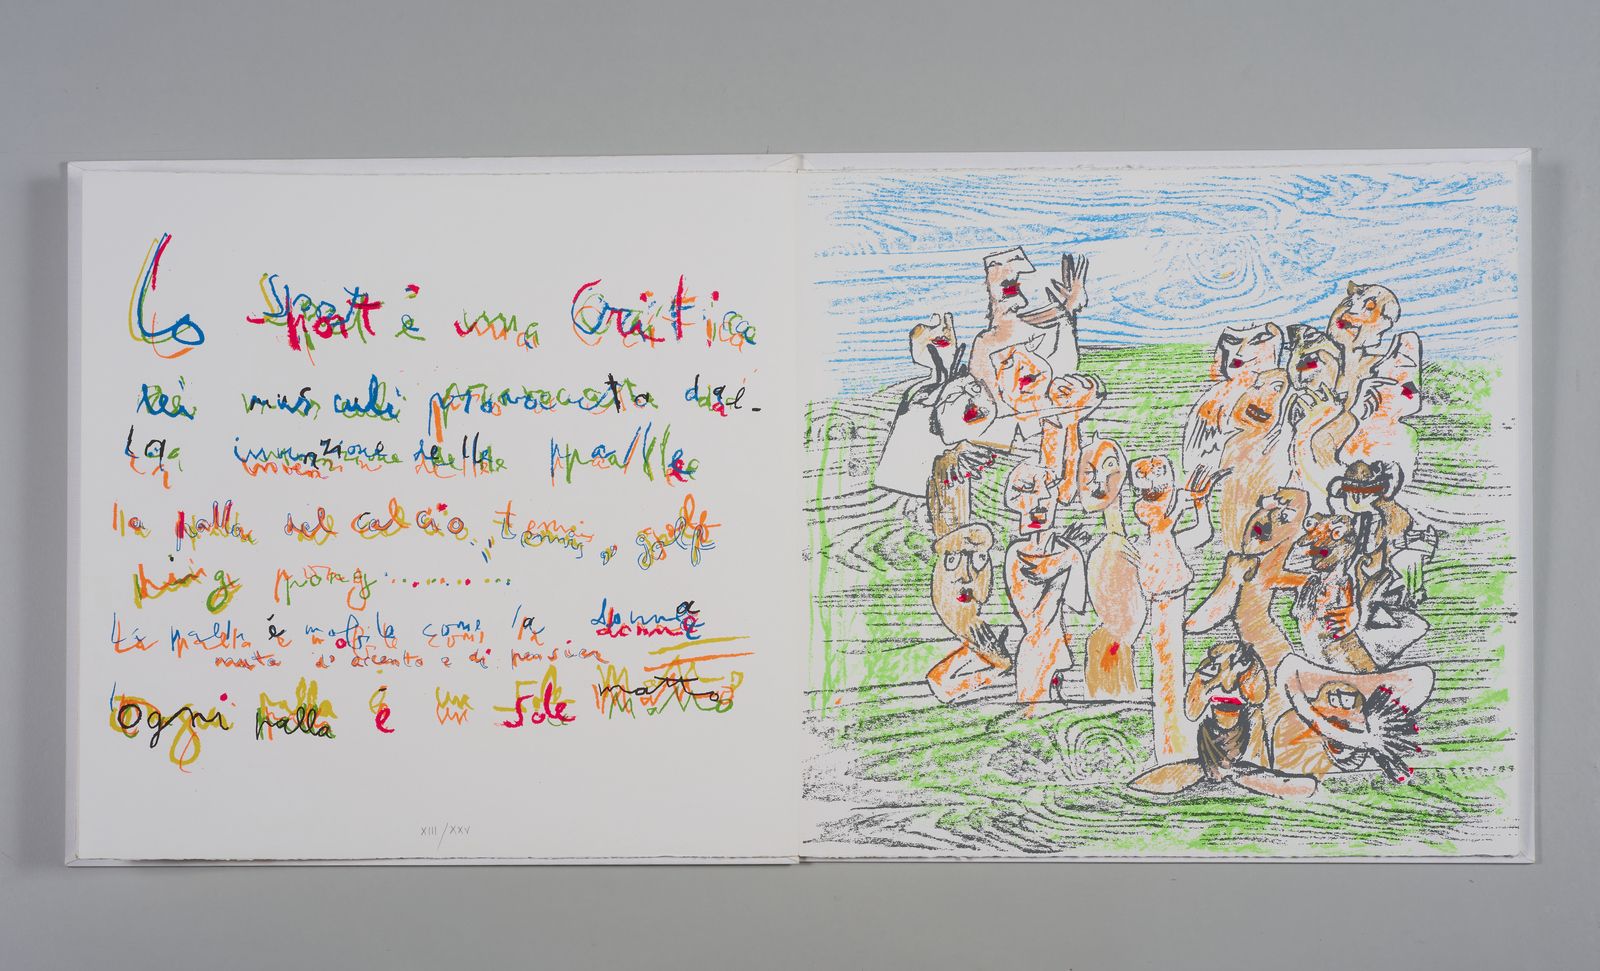 Lo Sport è una Critica
dei musculi provocata dal-
la invenzione delle palle
la palla del calcio, tennis, golf
ping pong..........
La palla è mobile come la donna
muta d'accento e di pensier
Ogni palla è un Sole matto
XIII/XXV